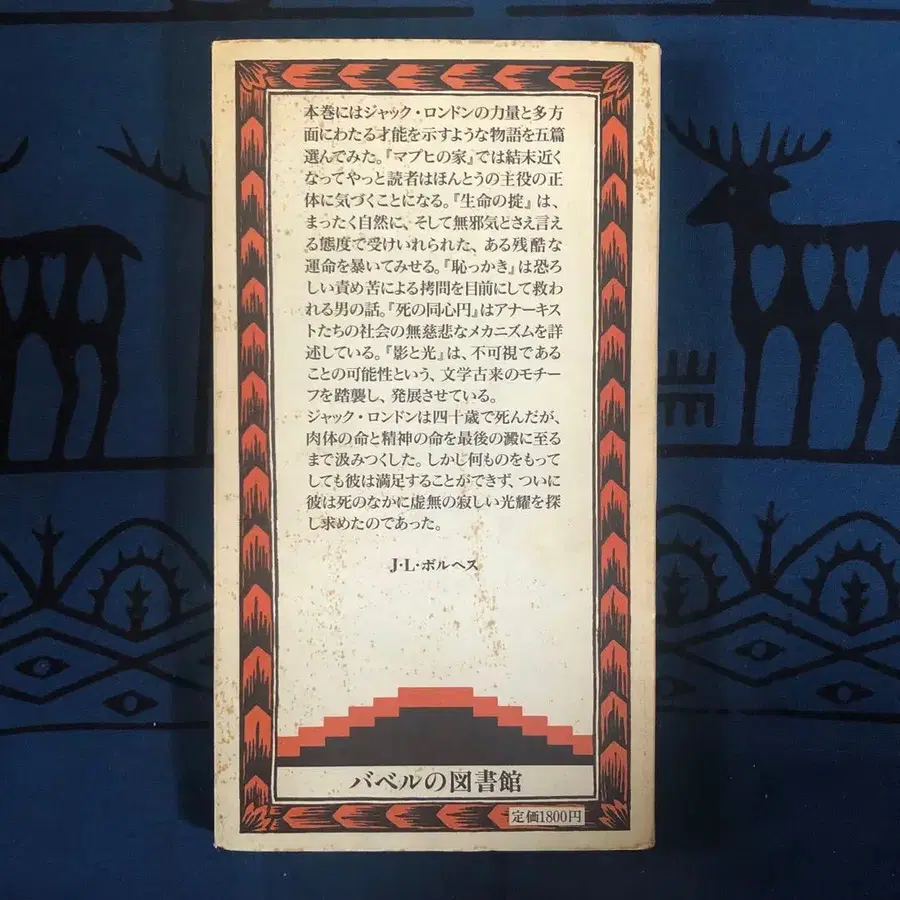 本巻にはジャック・ロンドンの力量と多方
面にわたる才能を示すような物語を五篇
選んでみた。『マプヒの家』では結末近く
なってやっと読者はほんとうの主役の正
体に気づくことになる。『生命の掟』は、
まったく自然に、そして無邪気とさえ言え
る態度で受けいれられた、ある残酷な
運命を暴いてみせる。『恥っかき』は恐ろ
しい責め苦による拷問を目前にして救わ
れる男の話。『死の同心円』はアナーキス
トたちの社会の無慈悲なメカニズムを詳
述している。『影と光』は、不可視である
ことの可能性という、文学古来のモチー
フを踏襲し、発展させている。
ジャック・ロンドンは四十歳で死んだが、
肉体の命と精神の命を最後の澱に至る
まで汲みつくした。しかし何ものをもって
しても彼は満足することができず、ついに
彼は死のなかに虚無の寂しい光耀を探
し求めたのであった。
J・L・ボルヘス
バベルの図書館
定価1800円